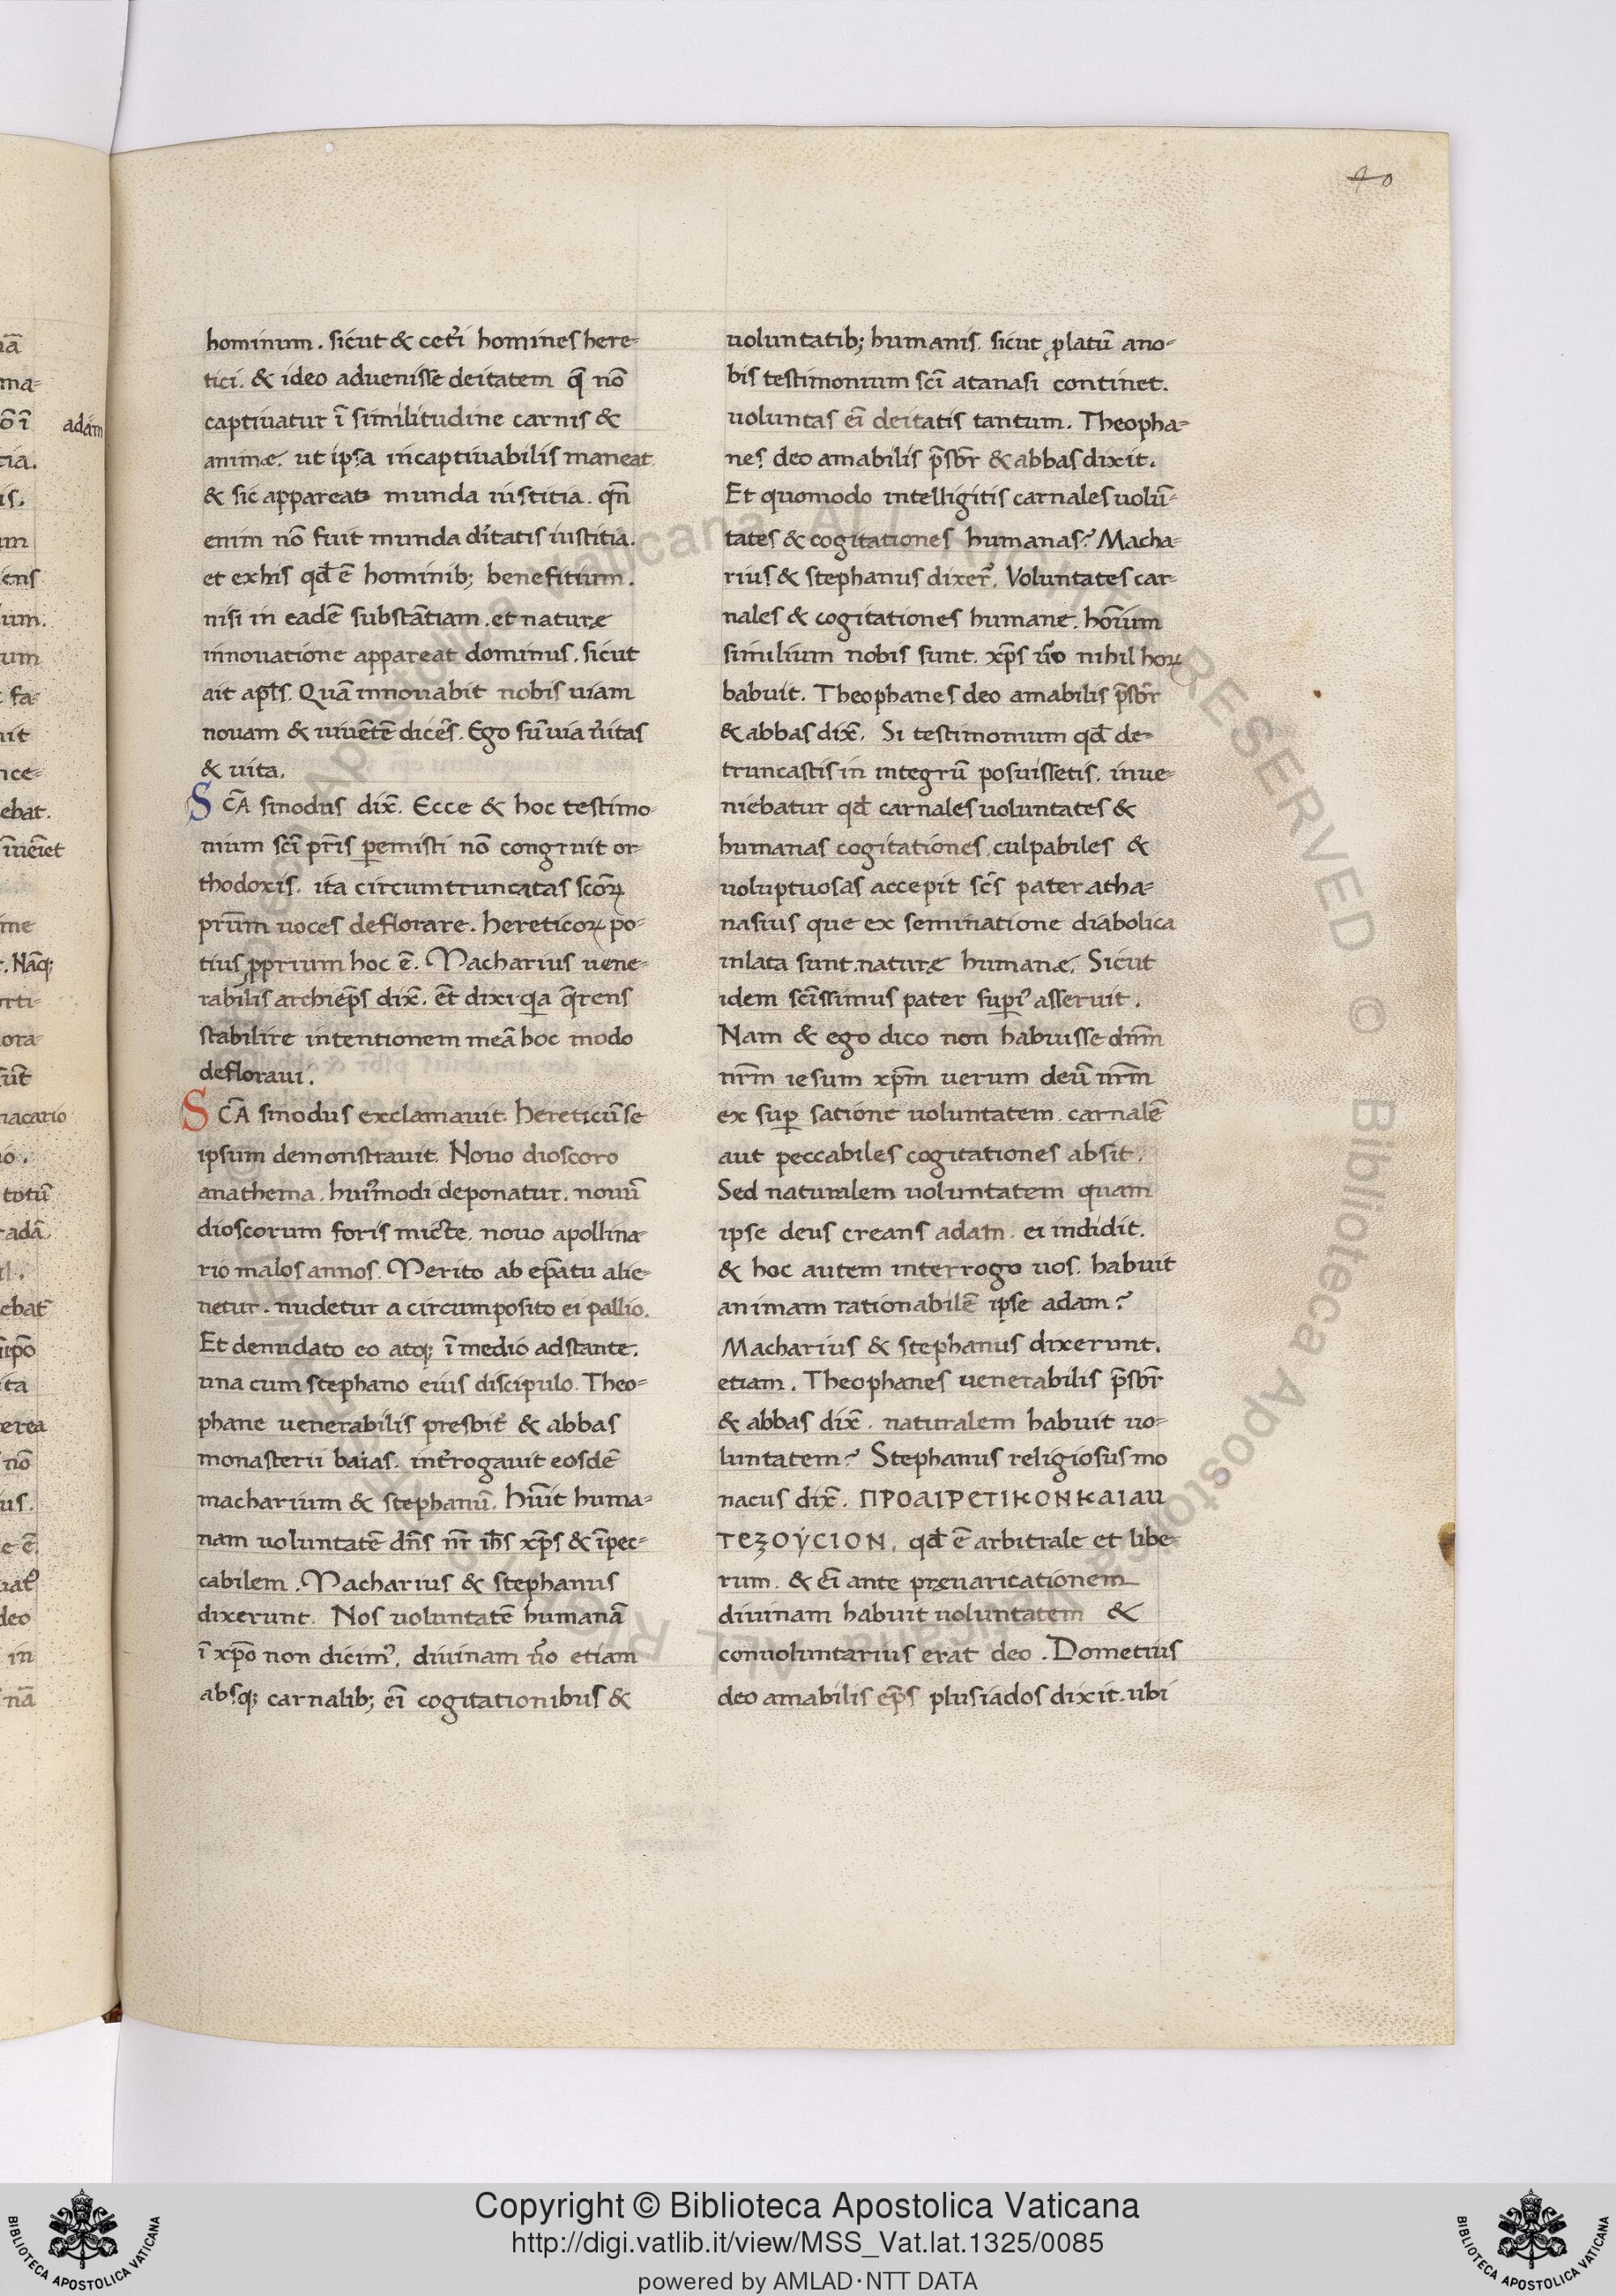 40
hominum. sicut & cet̃i homines here-
tici. & ideo aduenisse deitatem q̃ nō
captiuatur ī similitudine carnis &
animæ. ut ipsa incaptiuabilis maneat
& sic appareat munda iustitia. qñ
enim nō fuit munda d̃itatis iustitia.
et exhis qđ ē hominib; benefitium.
nisi in eadē substātiam. et naturæ
innouatione appareat dominus. sicut
ait aptl̃s. Quā innouabit nobis uiam
nouam & uiuētē dicēs. Ego sū uia ũitas
& uita.
SC̄A sinodus dix̄. Ecce & hoc testimo
nium sc̄i pr̄is p̲emisti nō congruit or-
thodoxis. ita circumtruncatas scōꝝ
prūm uoces deflorare. hereticoꝝ po-
tius ꝓprium hoc ē. Macharius uene-
rabilis archiep̄s dix̄. et̄ dixi q̲a q̄rens
stabilire intentionem meā hoc modo
defloraui.
SC̄A sinodus exclamauit. hereticū se
ipsum demonstrauit. Nouo dioscoro
anathema. hui᾽modi deponatur. nouū
dioscorum foris micte. nouo apollina-
rio malos annos. Merito ab ep̄atu alie-
netur. nudetur a circumposito ei pallio.
Et denudato eo atq; ī medio adstante.
una cum stephano eius discipulo. Theo-
phane uenerabilis presbit̃ & abbas
monasterii baias. int̃rogauit eosdē
macharium & stephanū. hūit huma-
nam uoluntatē dn̄s nr̄ ih̄s xp̄s & īpec-
cabilem. Macharius & stephanus
dixerunt. Nos uoluntatē humanā
ī xp̄o non dicim᾽. diuinam ũo etiam
absq; carnalib; eī cogitationibus &
uoluntatib; humanis. sicut ꝓlatū ano-
bis testimonium sc̄i atanasi continet.
uoluntas eī deitatis tantum. Theopha-
nes deo amabilis p̄sbr̄ & abbas dixit.
Et quomodo intelligitis carnales uolū-
tates & cogitationes humanas? Macha-
rius & stephanus dixer̃. Voluntates car-
nales & cogitationes humane. hoīum
similium nobis sunt. xp̄s ũo nihil hoꝝ
habuit. Theophanes deo amabilis p̄sbr̄
& abbas dix̄. Si testimonium qđ de-
truncastis in integrū posuissetis. inue-
niebatur qđ carnales uoluntates &
humanas cogitationes culpabiles &
uoluptuosas accepit sc̄s pater atha-
nasius que ex seminatione diabolica
inlata sunt. naturæ humanæ. Sicut
idem sc̄issimus pater sup̲i᾽ asseruit.
Nam & ego dico non habuisse dnm̄
nrm̄ iesum xpm̄ uerum deū nrm̄
ex sup̲ satione uoluntatem. carnalē
aut peccabiles cogitationes absit.
Sed naturalem uoluntatem quam
ipse deus creans adam. ei indidit.
& hoc autem interrogo uos. habuit
animam rationabilē ipse adam?
Macharius & stephanus dixerunt.
etiam. Theophanes uenerabilis p̄sbr̄
& abbas dix̄. naturalem habuit uo-
luntatem? Stephanus religiosus mo
nacus dix̄. ΠΡΟΑΙΡΕΤΙΚΟΝΚΑΙΑU
ΤΕΞΟΥCΙΟΝ. qđ ē arbitrale et libe-
rum. & eī ante pręuaricationem
diuinam habuit uoluntatem &
conuoluntarius erat deo. Dometius
deo amabilis ep̄s plusiados dixit. ubi
adām
Copyright © Biblioteca Apostolica Vaticana
http://digi.vatlib.it/view/MSS_Vat.lat.1325/0085
powered by AMLAD·NTT DATA